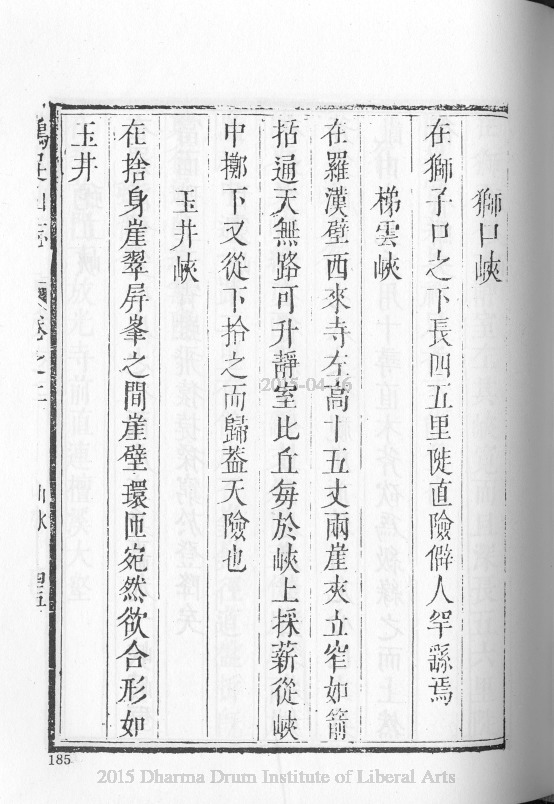 獅口峽
在獅子口之下長四五里陡直險僻人罕繇焉
梯雲峽
在羅漢壁西來寺左高十五丈兩崖夾立窄如箭
括通天無路可升靜室比丘每於峽上採薪從峽
中擲下又從下拾之而歸葢天險也
玉井峽
在捨身崖翠屏峯之間崖壁環匝宛然欲合形如
玉井
山志
卷之二
山水
185
2015-04-16
2015 Dharma Drum Institute of Liberal Arts